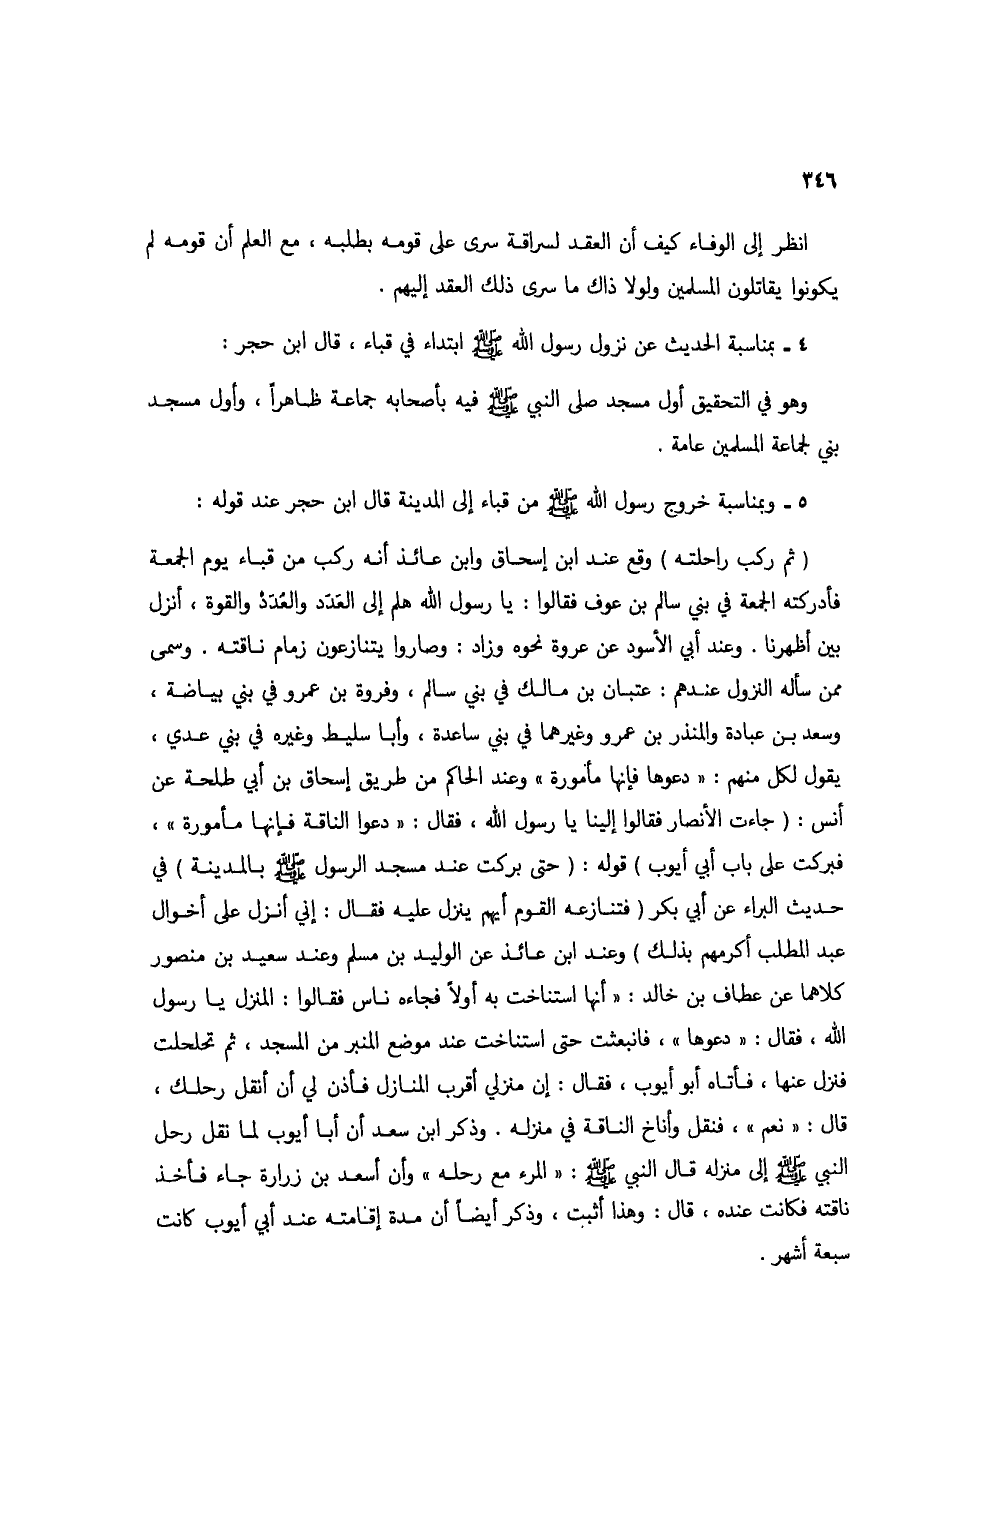 ٣٤٦
انظر إلى الوفاء كيف أن العقد لسراقة سرى على قومه بطلبه ، مع العلم أن قومه لم
يكونوا يقاتلون المسلمين ولولا ذاك ما سرى ذلك العقد إليهم .
٤ ـ بمناسبة الحديث عن نزول رسول الله ﷺ ابتداء في قباء ، قال ابن حجر :
وهو في التحقيق أول مسجد صلى النبي ﷺ فيه بأصحابه جماعة ظاهراً ، وأول مسجد
بني لجماعة المسلمين عامة .
٥ ـ وبمناسبة خروج رسول الله ﷺ من قباء إلى المدينة قال ابن حجر عند قوله :
( ثم ركب راحلته ) وقع عند ابن إسحاق وابن عائذ أنه ركب من قباء يوم الجمعة
فأدركته الجمعة في بني سالم بن عوف فقالوا : يا رسول الله هلم إلى العَدَد والعُدَدْ والقوة ، أنزل
بين أظهرنا . وعند أبي الأسود عن عروة نحوه وزاد : وصاروا يتنازعون زمام ناقته . وسمى
ممن سأله النزول عندهم : عتبان بن مالك في بني سالم ، وفروة بن عمرو في بني بياضة ،
وسعد بن عبادة والمنذر بن عمرو وغيرهما في بني ساعدة ، وأبا سليط وغيره في بني عدي ،
يقول لكل منهم : « دعوها فإنها مأمورة » وعند الحاكم من طريق إسحاق بن أبي طلحة عن
أنس : ( جاءت الأنصار فقالوا إلينا يا رسول الله ، فقال : « دعوا الناقة فإنها مأمورة » ،
فبركت على باب أبي أيوب ) قوله : ( حتى بركت عند مسجد الرسول ﷺ بالمدينة ) في
حديث البراء عن أبي بكر ( فتنازعه القوم أيهم ينزل عليه فقال : إني أنزل على أخوال
عبد المطلب أكرمهم بذلك ) وعند ابن عائذ عن الوليد بن مسلم وعند سعيد بن منصور
كلاهما عن عطاف بن خالد : « أنها استناخت به أولاً فجاءه ناس فقالوا : المنزل يا رسول
الله ، فقال : « دعوها » ، فانبعثت حتى استناخت عند موضع المنبر من المسجد ، ثم تحلحلت
فنزل عنها ، فأتاه أبو أيوب ، فقال : إن منزلي أقرب المنازل فأذن لي أن أنقل رحلك ،
قال : « نعم » ، فنقل وأناخ الناقة في منزله . وذكر ابن سعد أن أبا أيوب لما نقل رحل
النبي ﷺ إلى منزله قال النبي ﷺ : « المرء مع رحله » وأن أسعد بن زرارة جاء فأخذ
ناقته فكانت عنده ، قال : وهذا أثبت ، وذكر أيضاً أن مدة إقامته عند أبي أيوب كانت
سبعة أشهر .